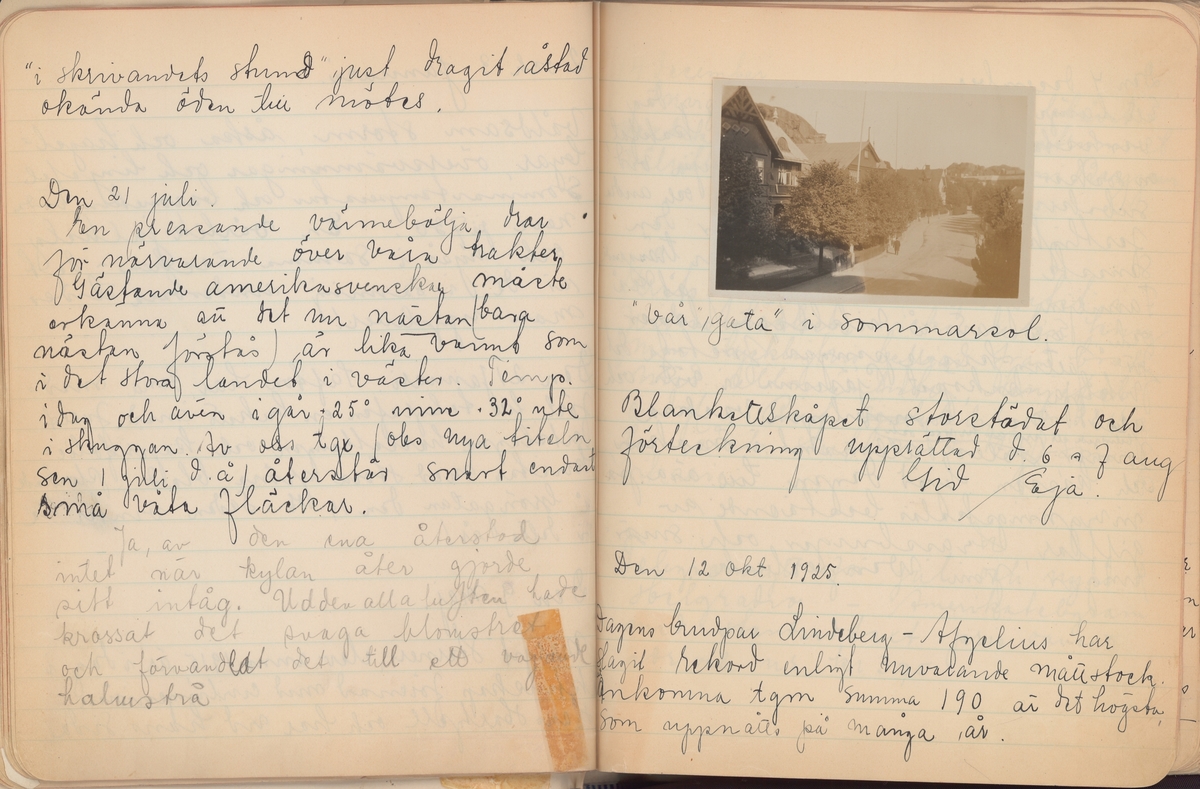 "i skrivandets stund" just dragit åstad
okända öden till mötes.
Den 21 juli.
En pressande värmebölja drar
för närvarande över våra trakter.
Gästande amerikasvenskar måste
erkänna att det nu nästan (bara
nästan förstås) är lika varmt som
i det stora landet i väster. Temp.
idag och även igår + 25° min + 32° ute
i skuggan. Av oss tgx (obs nya titeln
sen 1 juli d.å) återstår snart endast
små våta fläckar.
Ja, av den ena återstod
intet när kylan åter gjorde
sitt intåg. Uddevallaluften hade
krossat det svaga blomstret
och förvandlat det till ett vajande
halmstrå
"vår gata" i sommarsol.
Blankettskåpet storstädat och
förteckning upprättad d. 6 o 7 aug
Gid / Eja.
Den 12 okt 1925.
Dagens brudpar Lindeberg - Afzelius har
slagit rekord enligt nuvarande måttstock.
Ankomna tgm summa 190 är det högsta,
som uppnåtts på många år.